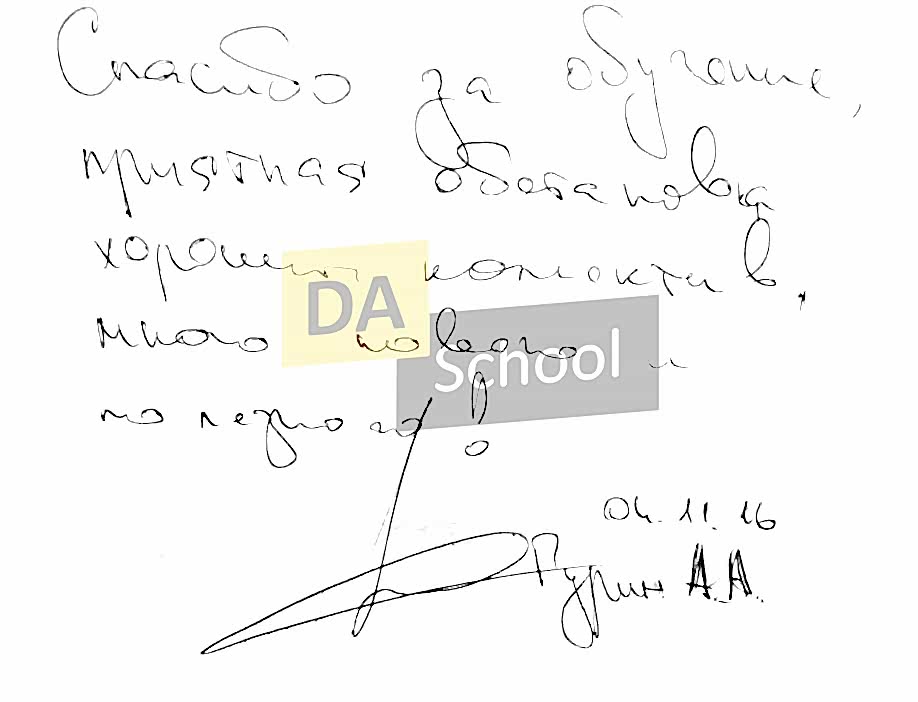 Спасибо за обучение,
приятная обстановка
хороший коллектив,
много нового и
полезного!
DA
School
04.11.16
Пурин А.А.